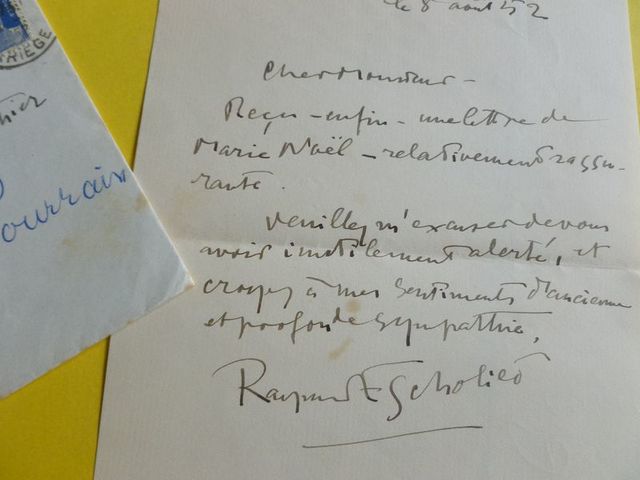 le 8 août 52
Cher Monsieur -
Reçu - enfin - une lettre de
Marie Noël - relativement rassu-
rante.
Veuillez m'excuser de vous
avoir inutilement alerté, et
croyez à mes sentiments d'ancienne
et profonde sympathie,
Raymond Escholier
RIEGE
Pourrain